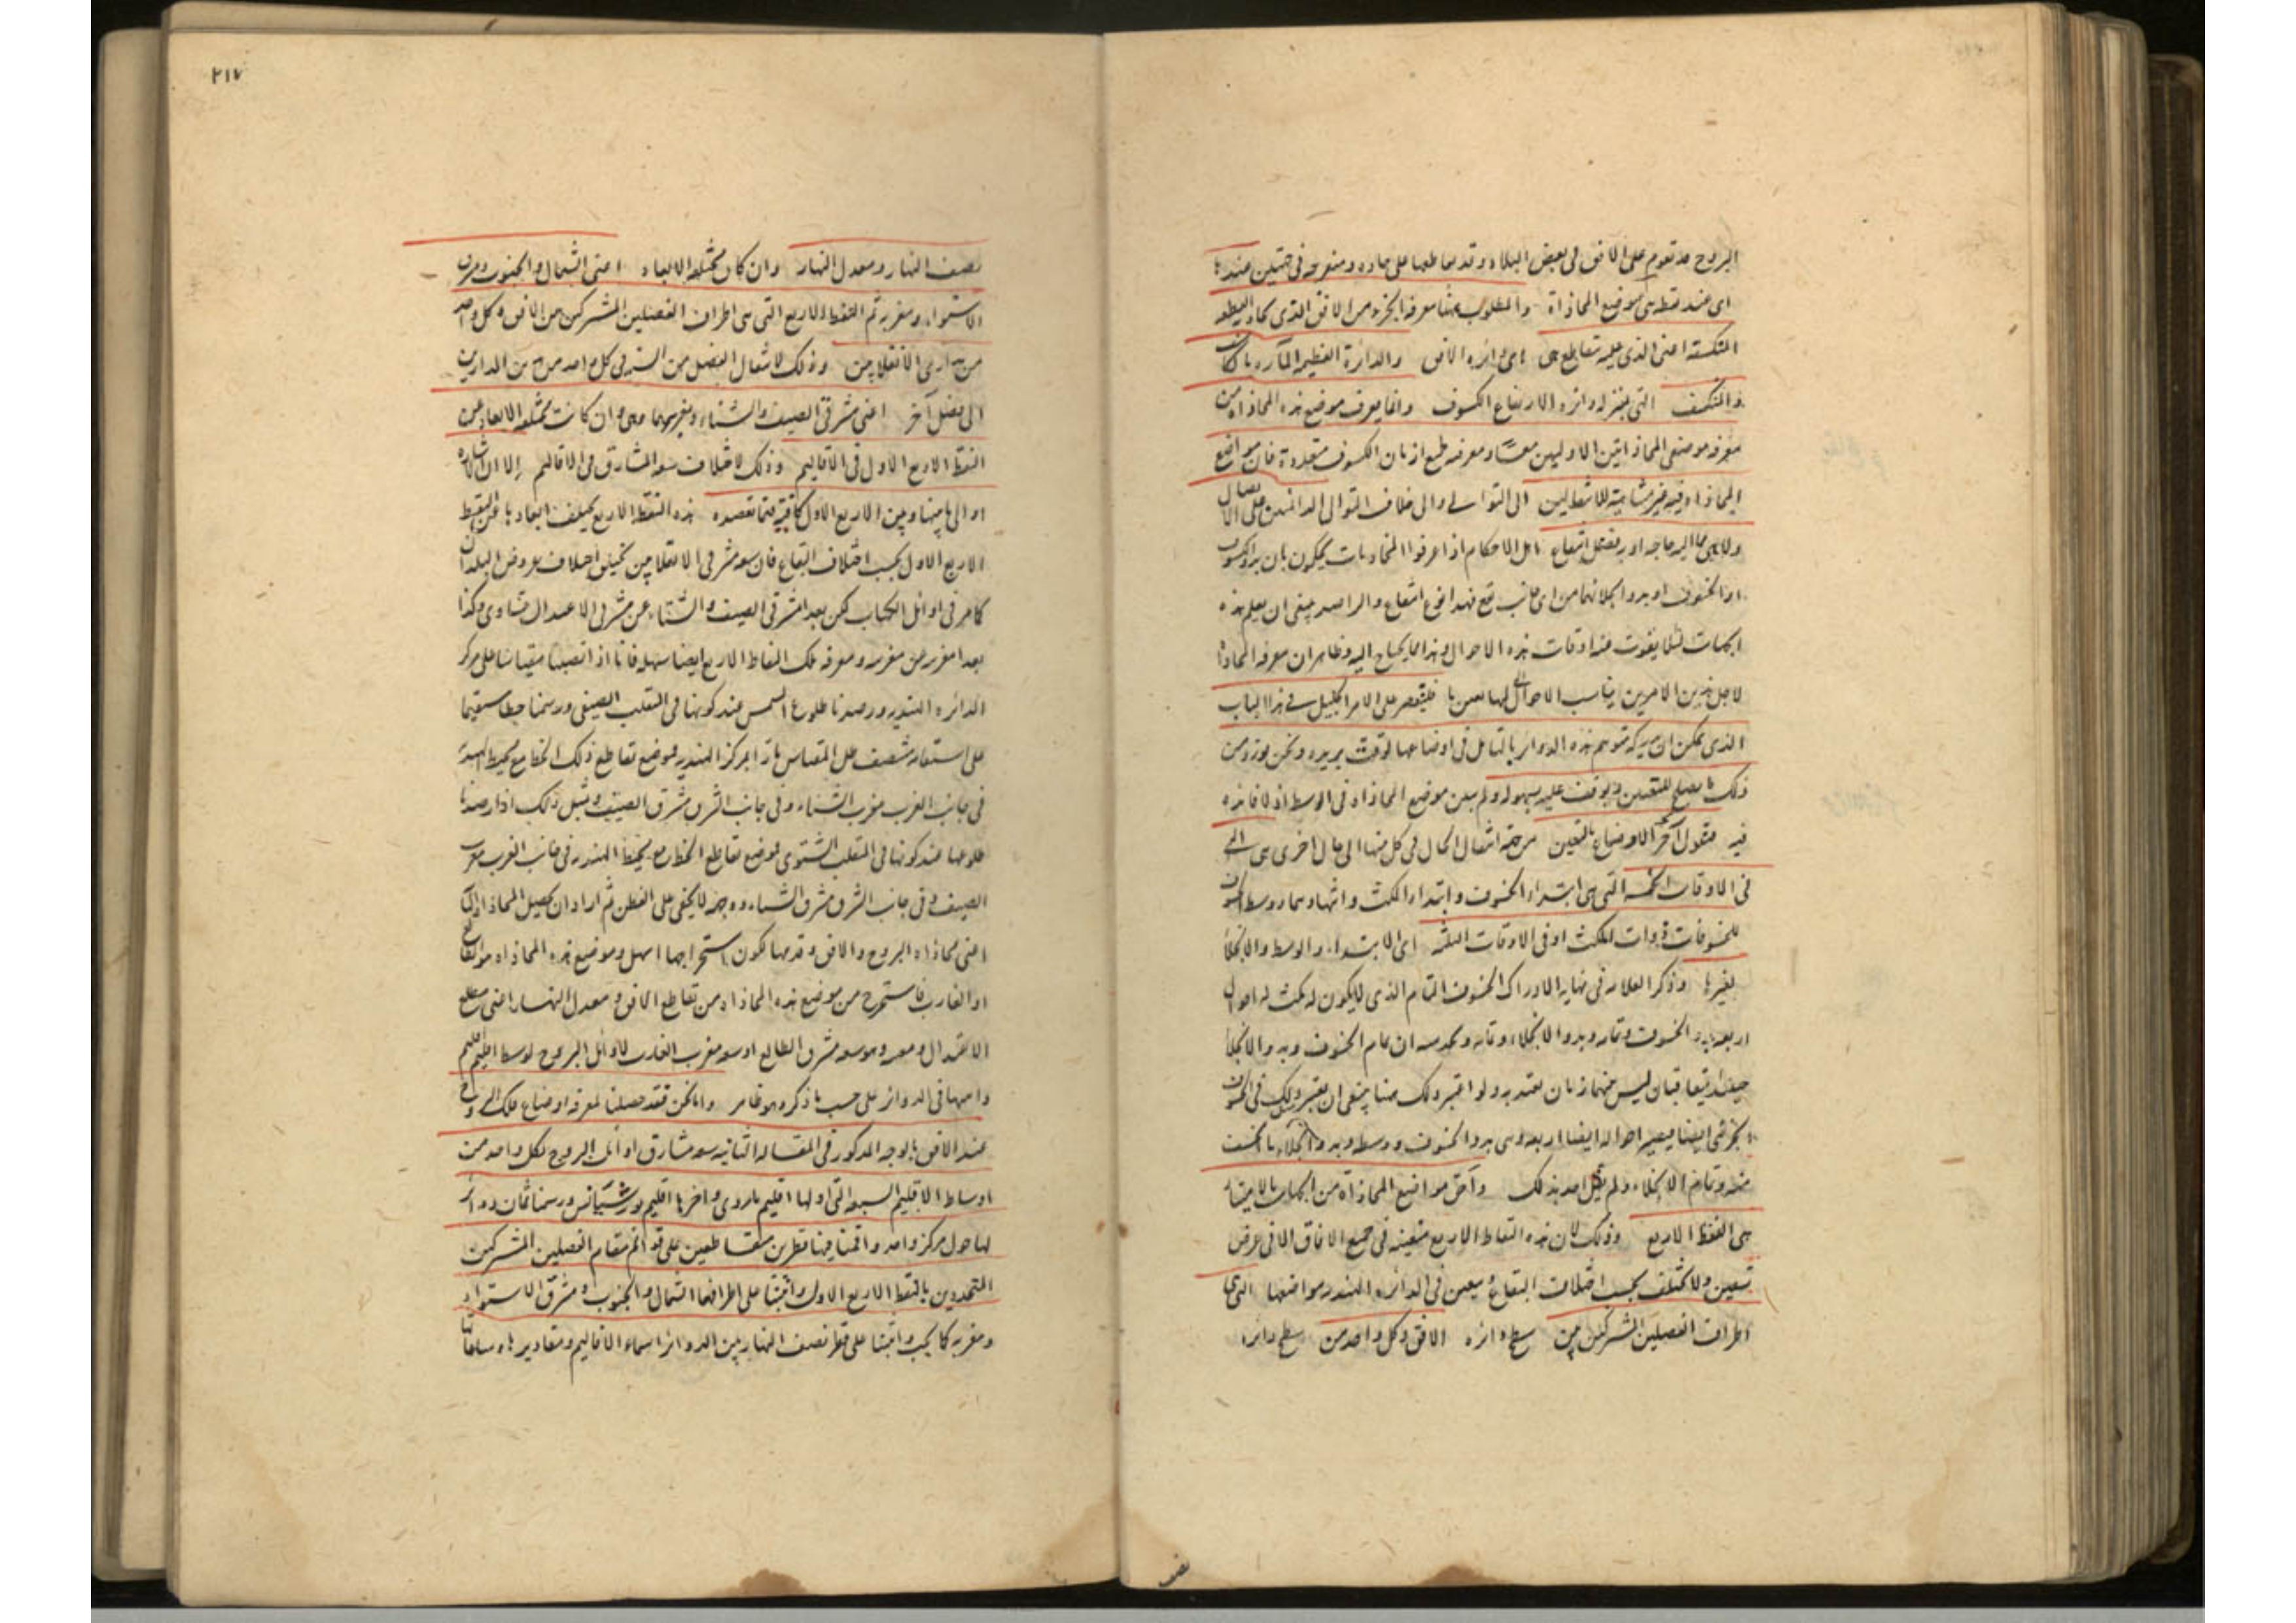 البروج قد تقوم على الافق فى بعض البلاد وقد تقاطعها على حاده ومنفرجه فى جهتين عند
اى عند نقطه هى موضع المحاذاة والمطلوب ههنا معرفه الجزء من الافق الذى يحاذيه القطعه
المنكسفه اعنى الذى عليه تقاطع هى اى دائره الافق والدائرة العظيمه المارة بالكاسف
والمنكسف التى بمنزله دائره الارتفاع الكسوف وانما يعرف موضع هذه المحاذاه من
معرفه موضعى المحاذاتين الاوليين معًا ومعرفه جميع ازمان الكسوف متعذرة فان مواضع
المحاذاه فيه غير متناهيه للانتقالين الى التوالى والى خلاف التوالى الدائمين على الاتصال
ولا هى مما اليه حاجه او به يعقل انتفاع اهل الاحكام اذا عرفوا المحاذيات يحكمون بان بدو الكسوف
او الخسوف او بدو انجلائهما من اى جانب تقع فهذا نوع انتفاع والراصد ينبغى ان يعلم هذه
الجهات لئلا يفوت عنه اوقات هذه الاحوال وهذا مما يحتاج اليه وظاهر ان معرفه المحاذاه
لاجل هذين الامرين يناسب الاحوال لها فليقتصر على الامر الجليل فى هذا الباب
الذى يمكن ان يدركه متوهم هذه الدوائر بالتامل فى اوضاعها لوقت يريده ونحن نورد من
ذلك ما يصلح للتعيين ويوقف عليه بسهوله ولم يبين موضع المحاذاه فى الوسط اذ لا فائده
فيه فنقول آخر الاوضاع بالتعيين من جهة انتقال الحال فى كل منها الى حال اخرى هى التى
فى الاوقات الخمسه التى هى ابتداء الخسوف وابتداء المكث وانتهاوهما ووسط الخسوف
للخسوفات ذوات المكث او فى الاوقات الثلثه اى الابتداء والوسط والانجلاء
لغيرها وذكر العلامه فى نهايه الادراك الخسوف التام الذى لا يكون له مكث له احوال
اربعه بدو الخسوف وتمامه وبدو الانجلاء وتمامه ان تمام الخسوف وبدو الانجلاء
حينئذ يتعاقبان ليس بينهما زمان يعتد به ولو اعتبر ذلك هنا ينبغى ان يعتبر ذلك فى الخسوف
الجزئى ايضا فيصير احواله ايضا اربعه وهى بدو الخسوف ووسطه وبدو انجلاء ما انخسف
منه وتمام الانجلاء ولم يقل احد بذلك وآحق مواضع المحاذاة من الجهات بالاثبات
هى النقط الاربع وذلك لان هذه النقاط الاربع متعينه فى جميع الافاق الا فى عرض
تسعين ولا تختلف بحسب اختلاف البقاع ويتعين فى الدائره الهنديه مواضعها التى
اطراف الفصلين المشتركين بين سطح دائره الافق وكل واحد من سطح دائرة
نصف
٢١٧
نصف النهار ومعدل النهار وان كان مختلفه الابعاد اعنى الشمال والجنوب ومشرق
الاستواء ومغربه ثم النقط الاربع التى هى اطراف الفصلين المشتركين من الافق وكل واحد
من مدارى الانقلابين وذلك لانتقال الفصل من السنه فى كل واحد من هذين المدارين
الى فصل آخر اعنى مشرقى الصيف والشتاء ومغربيهما وهى وان كانت مختلفه الابعاد عن
النقط الاربع الاول فى الاقاليم وذلك لاختلاف سعه المشارق فى الاقاليم إلا ان الاشاره
او الى ما بينها وبين الاربع الاول كافيه فيما نقصده هذه النقط الاربع يختلف ابعادها عن النقط
الاربع الاول بحسب اختلاف البقاع فان سعه مشرقى الانقلابين تختلف باختلاف عروض البلدان
كما مر فى اوائل الكتاب لكن بعد مشرقى الصيف والشتاء عن مشرقى الاعتدال متساوى وكذا
بعدا مغربه عن مغربه ومعرفه تلك النقاط الاربع ايضا سهله فانا اذا نصبنا مقياسا على مركز
الدائره الهنديه ورصدنا طلوع الشمس عند كونها فى المنقلب الصيفى ورسمنا خطا مستقيما
على استقامه منتصف ظل المقياس مارّا بمركز الهنديه فموضع تقاطع ذلك الخط مع محيط الهنديه
فى جانب الغرب مغرب الشتاء وفى جانب الشرق مشرق الصيف ومثل ذلك اذا رصدنا
طلوعها عند كونها فى المنقلب الشتوى فموضع تقاطع الخط مع محيط الهنديه فى جانب الغرب مغرب
الصيف وفى جانب الشرق مشرق الشتاء ووجهه لا يخفى على الفطن ثم اراد ان يحصل المحاذاه الثانيه
اعنى محاذاه البروج والافق وقدمها لكون استخراجها اسهل وموضع هذه المحاذاه هو الطالع
او الغارب فاستخرج من موضع هذه المحاذاه من تقاطع الافق ومعدل النهار اعنى مطلع
الاعتدال ومغربه وهو سعه مشرق الطالع او سعه مغرب الغارب لاوائل البروج لوسط اقليم اقليم
وامنها فى الدوائر على حسب ما ذكره وهو ظاهر واما نحن فقد حصلنا لمعرفه اوضاع فلك البروج
عند الافق بالوجه المذكور فى المقاله الثانيه سعه مشارق اوائل البروج لكل واحد من
اوساط الاقاليم السبعه التى اولها اقليم ماروى واخرها اقليم بورسثيانس ورسمنا ثمان دوائر
لها حول مركز واحد واقمنا فيها قطرين متقاطعين على قوائم مقام الفصلين المشتركين
المتحددين بالنقط الاربع الاول واثبتنا على اطرافهما الشمال والجنوب ومشرق الاستواء
ومغربه كما يجب واثبتنا على قطر نصف النهار بين الدوائر اسماء الاقاليم ومقادير ساعاتها